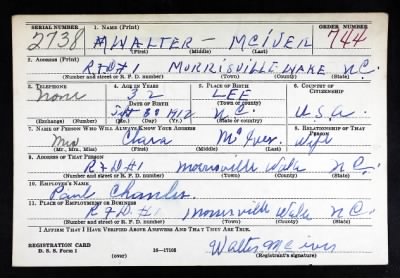 SERIAL NUMBER 1. NAME (Print) ORDER NUMBER
2738 WALTER — McIVER 744
(First) (Middle) (Last)
2. ADDRESS (Print)
R.F.D #1 MORRISVILLE WAKE N.C.
(Number and street or R. F. D. number) (Town) (County) (State)
3. TELEPHONE 4. AGE IN YEARS 5. PLACE OF BIRTH 6. COUNTRY OF CITIZENSHIP
None 32 LEE
DATE OF BIRTH (Town or county)
1912 N.C. U.S.A
(Exchange) (Number) (Mo.) (Day) (Yr.) (State or country)
7. NAME OF PERSON WHO WILL ALWAYS KNOW YOUR ADDRESS 8. RELATIONSHIP OF THAT PERSON
Mrs Clara McIver Wife
(Mr., Mrs., Miss) (First) (Middle) (Last)
9. ADDRESS OF THAT PERSON
R.F.D #1 Morrisville Wake N.C.
(Number and street or R. F. D. number) (Town) (County) (State)
10. EMPLOYER'S NAME
Paul
11. PLACE OF EMPLOYMENT OR BUSINESS
R.F.D. #1 Morrisville Wake N.C.
(Number and street or R. F. D. number) (Town) (County) (State)
I AFFIRM THAT I HAVE VERIFIED ABOVE ANSWERS AND THAT THEY ARE TRUE.
REGISTRATION CARD
D. S. S. Form 1 16—17105 Walter McIver
(over) (Registrant's signature)